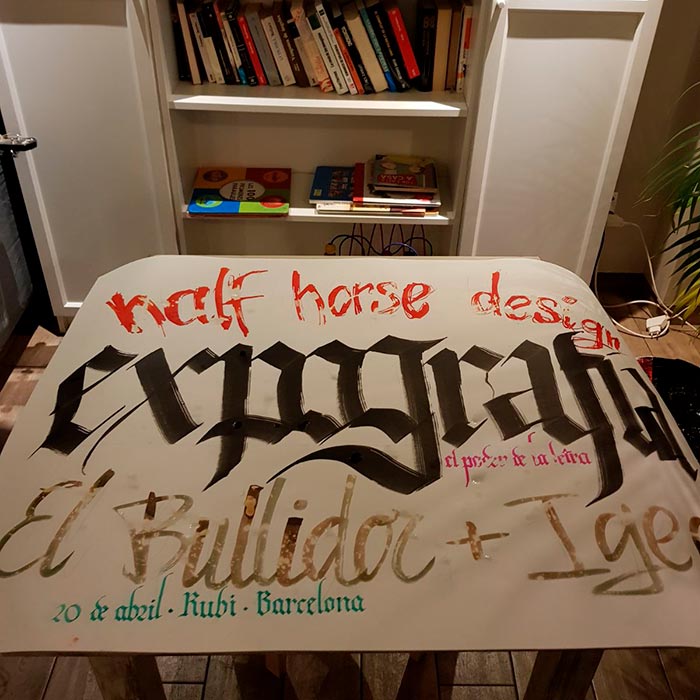 half horse design
expografia
el poder de la letra
El Bullidor + Ige
20 de abril · Rubi · Barcelona